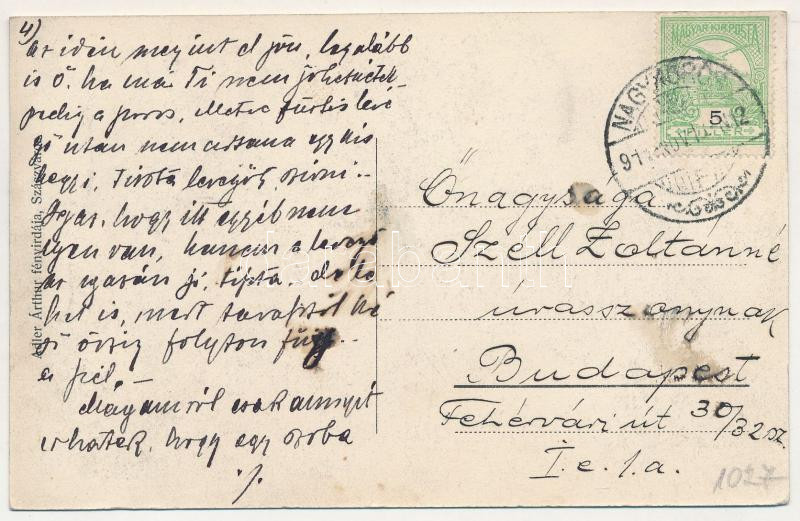 4)
az idén megint el jön, legalább
is ő. ha már Ti nem jöhettek
pedig a poros, füstös levegő
ő után nem ártana egy kis
hegyi, tiszta levegőt szívni.
Igaz, hogy itt egyéb nem
igen van, hanem a levegő
az igazán jó, tiszta. de le
het is, mert tavasztól ké
ső őszig folyton fúj
a szél. –
Magamról csak annyit
írhatok, hogy egy szoba
·/·
Adler Arthur fényirdája, Szászváros
MAGYAR KIR. POSTA
5
FILLÉR
NAGYÁG
911
Őnagysága
Széll Zoltánné
úrasszonynak
Budapest
Fehérvári út 30/32 sz.
I. e. 1. a.
1027